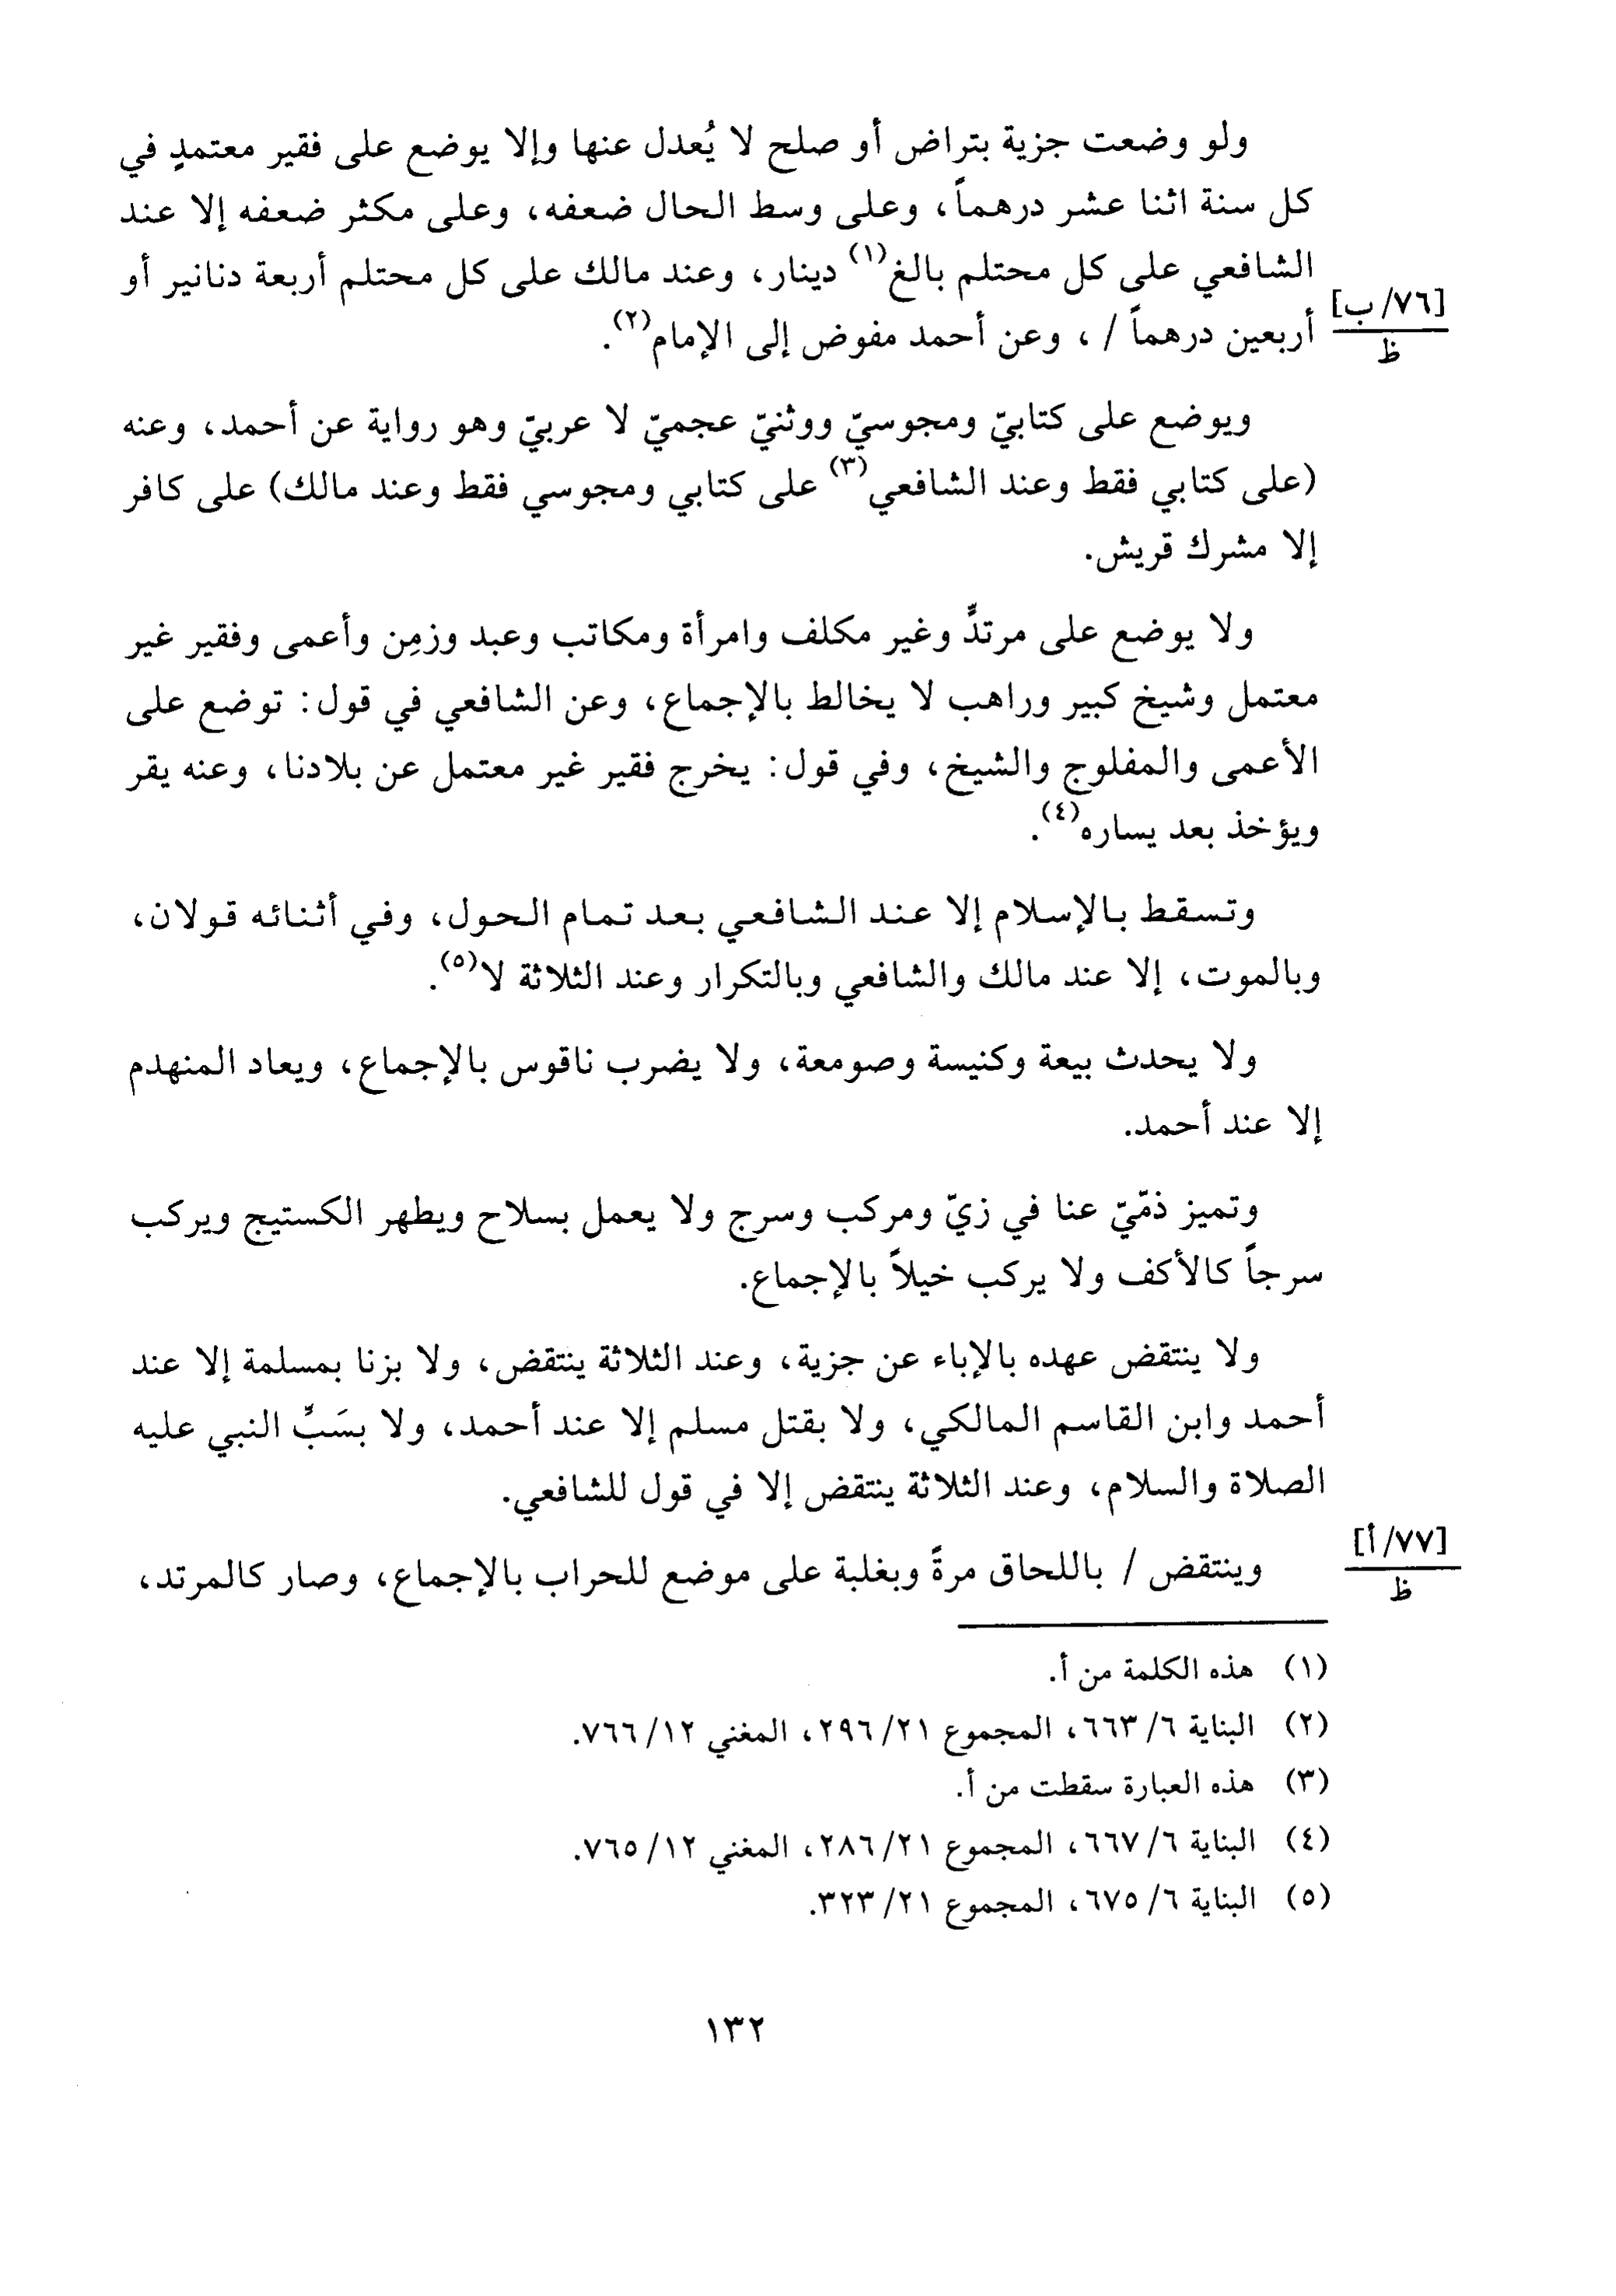 ولو وضعت جزية بتراض أو صلح لا يُعدل عنها وإلا يوضع على فقير معتمدٍ في
كل سنة اثنا عشر درهماً، وعلى وسط الحال ضعفه، وعلى مكثر ضعفه إلا عند
الشافعي على كل محتلم بالغ(١) دينار، وعند مالك على كل محتلم أربعة دنانير أو
[٧٦/ ب]
ظ
أربعين درهماً / ، وعن أحمد مفوض إلى الإمام(٢).
ويوضع على كتابيّ ومجوسيّ ووثنيّ عجميّ لا عربيّ وهو رواية عن أحمد، وعنه
(على كتابي فقط وعند الشافعي(٣) على كتابي ومجوسي فقط وعند مالك) على كافر
إلا مشرك قريش.
ولا يوضع على مرتدٍّ وغير مكلف وامرأة ومكاتب وعبد وزمِن وأعمى وفقير غير
معتمل وشيخ كبير وراهب لا يخالط بالإجماع، وعن الشافعي في قول: توضع على
الأعمى والمفلوج والشيخ، وفي قول: يخرج فقير غير معتمل عن بلادنا، وعنه يقر
ويؤخذ بعد يساره(٤).
وتسقط بالإسلام إلا عند الشافعي بعد تمام الحول، وفي أثنائه قولان،
وبالموت، إلا عند مالك والشافعي وبالتكرار وعند الثلاثة لا(٥).
ولا يحدث بيعة وكنيسة وصومعة، ولا يضرب ناقوس بالإجماع، ويعاد المنهدم
إلا عند أحمد.
وتميز ذمّيّ عنا في زيّ ومركب وسرج ولا يعمل بسلاح ويطهر الكستيج ويركب
سرجاً كالأكف ولا يركب خيلاً بالإجماع.
ولا ينتقض عهده بالإباء عن جزية، وعند الثلاثة ينتقض، ولا بزنا بمسلمة إلا عند
أحمد وابن القاسم المالكي، ولا بقتل مسلم إلا عند أحمد، ولا بسَبِّ النبي عليه
الصلاة والسلام، وعند الثلاثة ينتقض إلا في قول للشافعي.
[٧٧/ أ]
ظ
وينتقض / باللحاق مرةً وبغلبة على موضع للحراب بالإجماع، وصار كالمرتد،
(١) هذه الكلمة من أ.
(٢) البناية ٦/ ٦٦٣، المجموع ٢١/ ٢٩٦، المغني ١٢/ ٧٦٦.
(٣) هذه العبارة سقطت من أ.
(٤) البناية ٦/ ٦٦٧، المجموع ٢١/ ٢٨٦، المغني ١٢/ ٧٦٥.
(٥) البناية ٦/ ٦٧٥، المجموع ٢١/ ٣٢٣.
١٣٢